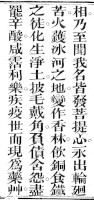 相乃至聞我名皆發菩提心永出輪廻
者火鑊冰河之地變作香林飲銅食鐵
之徒化生淨土披毛戴角負債含怨盡
罷辛酸咸霑利樂疾疫世而現為藥草